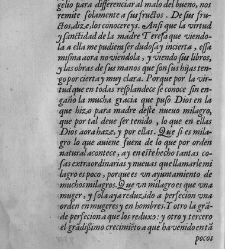 gelio para differenciar al malo del bueno, nos
remite solamente a sus fructos. De sus fru-
ctos, dize, los conocereys. Ansi que la virtud
y sanctidad de la madre Teresa que viendo-
la a ella me pudiera ser dudosa y incierta, essa
misma aora no viendola, y viendo sus libros,
y las obras de sus manos que son sus hijas ten-
go por cierta y muy clara. Porque por la vir-
tud que en todas resplandesce se conoce sin en-
gaño la mucha gracia que puso Dios en la
que hizo para madre deste nueuo milagro,
que por tal deue ser tenido, lo que en ellas
Dios aora haze, y por ellas. Que si es mila-
gro lo que auiene fuera de lo que por orden
natural acontece, ay en este hecho tantas co-
sas extraordinarias y nueuas que llamarle mi
lagro es poco, porque es vn ayuntamiento de
muchos milagros. Que vn milagro es que vna
muger, y sola aya reduzido a perfecion vna
orden en mugeres y en hombres. Y otro la grã
de perfecion a que los reduxo: y otro y tercero
el grãdissimo crecimiẽto a que ha venido en tã
pocos